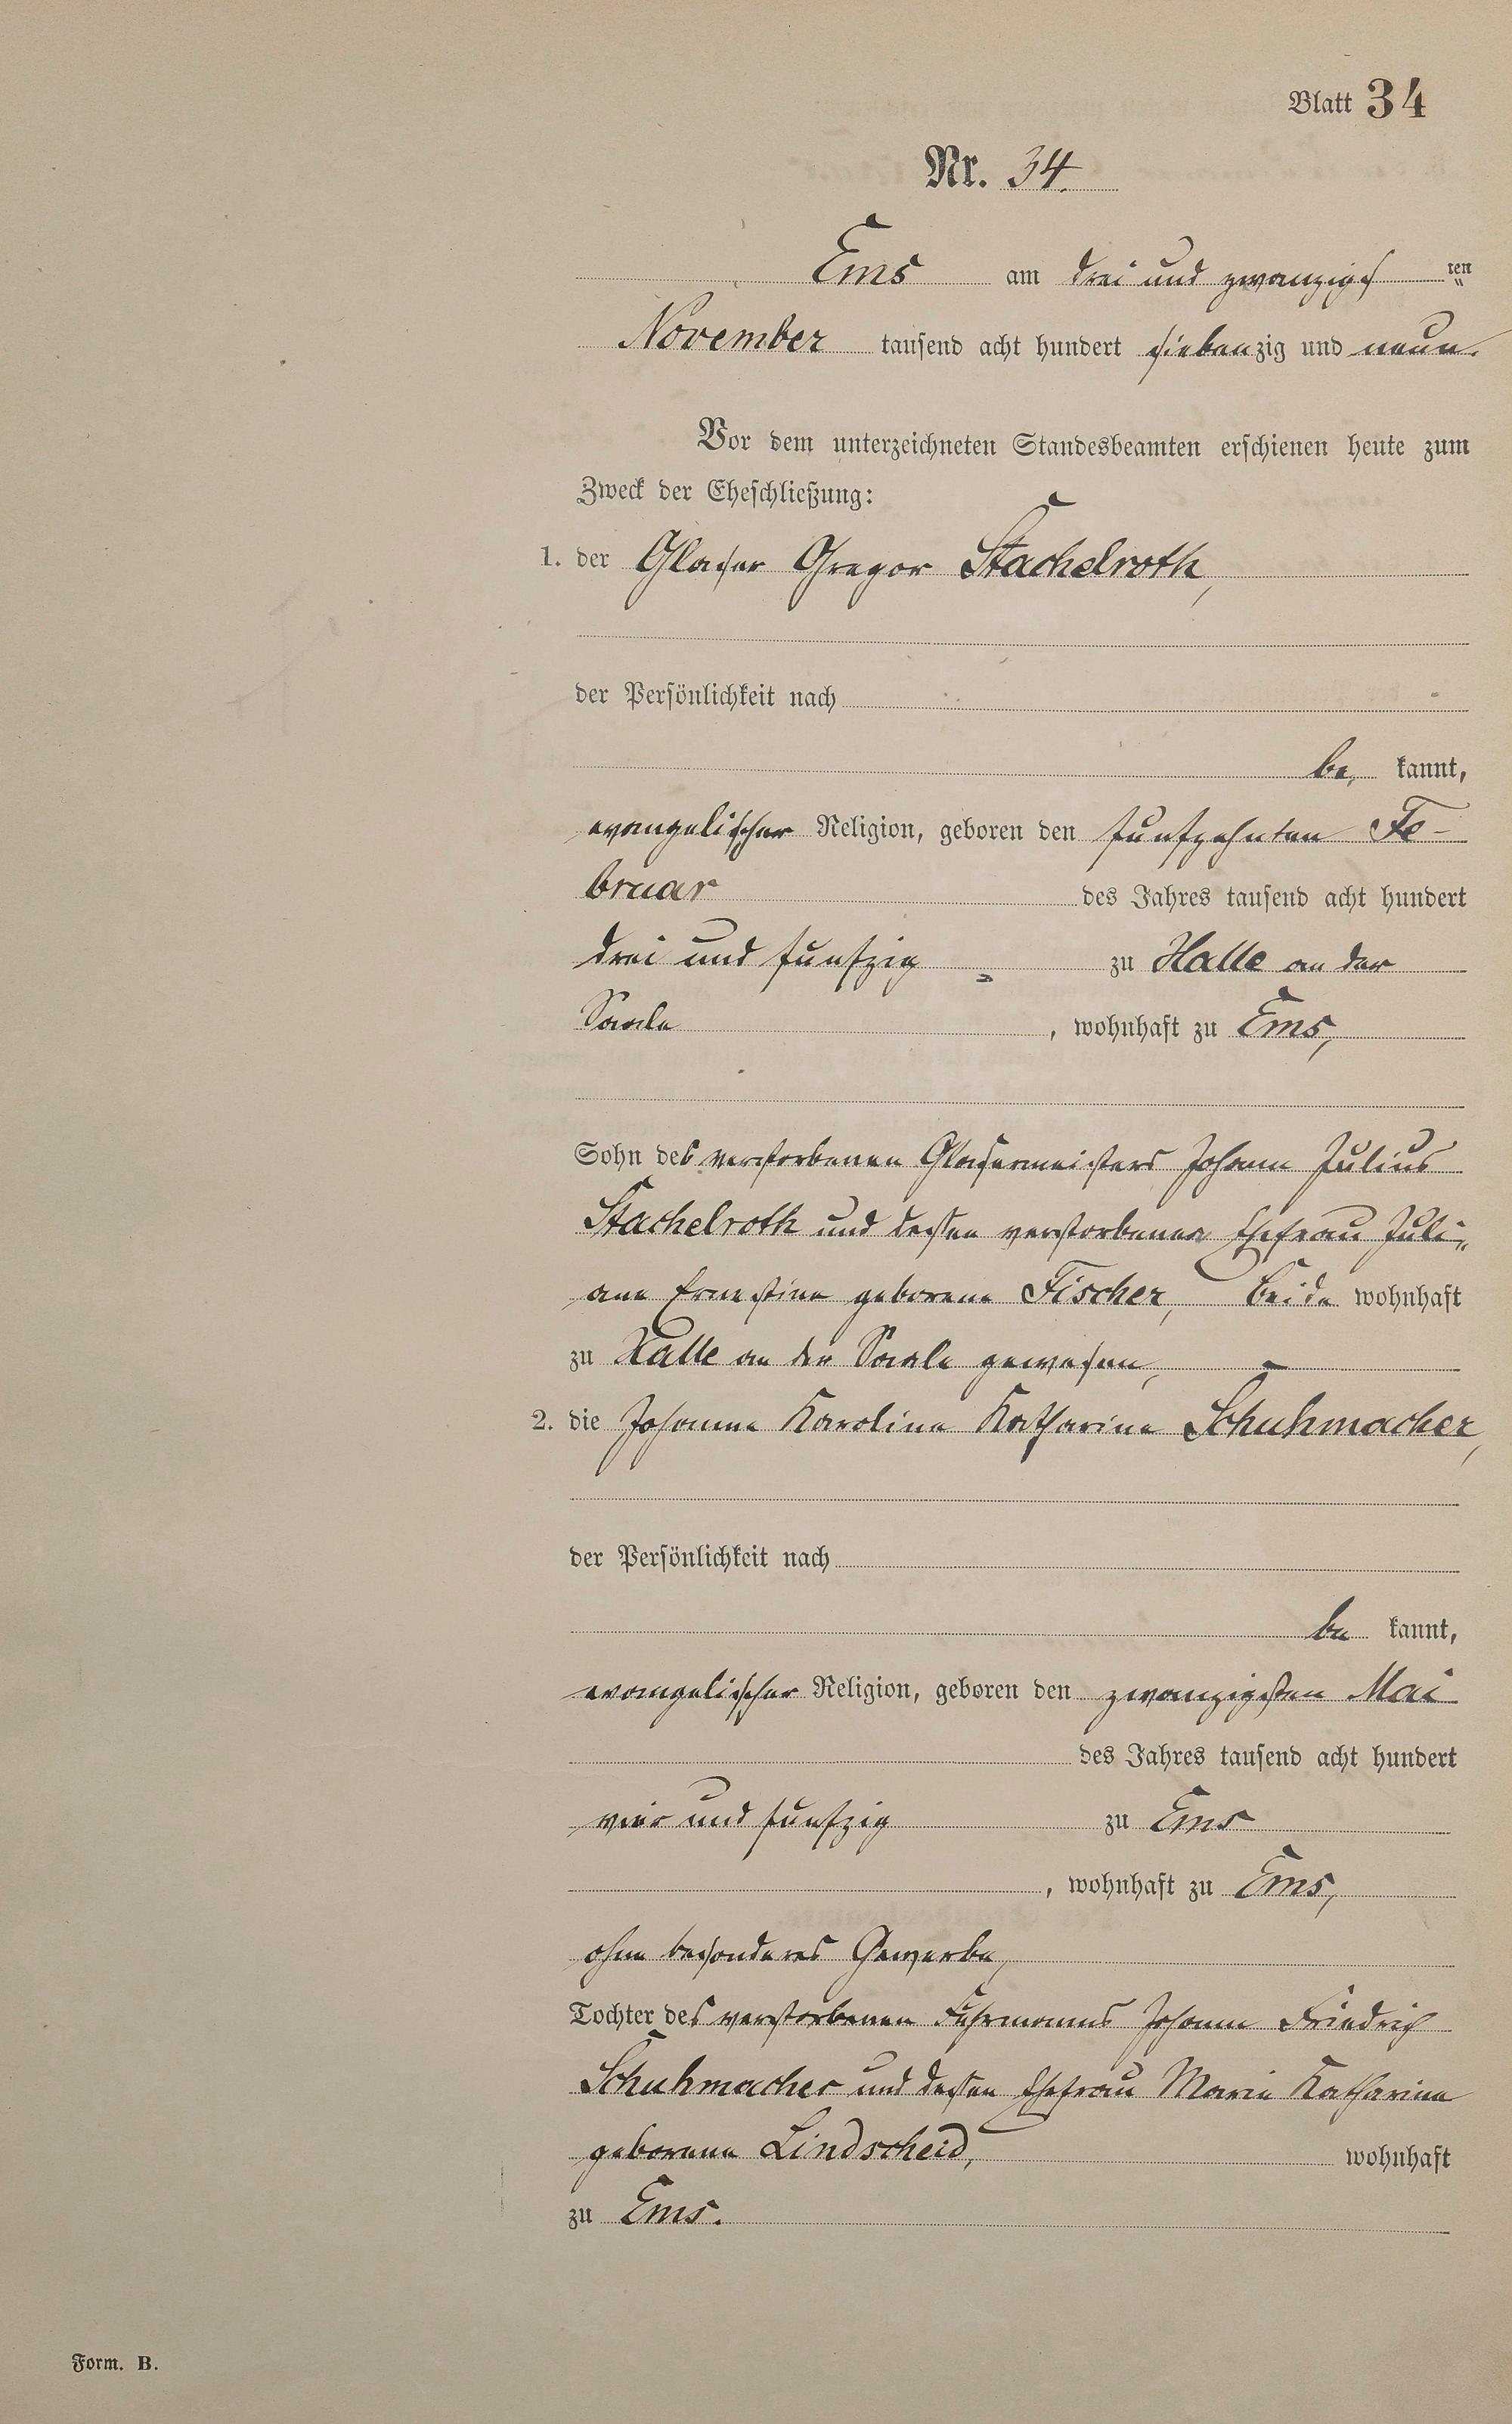 Blatt 34
Nr. 34.
Ems am drei und zwanzigsten
November tausend acht hundert siebenzig und neun.
Vor dem unterzeichneten Standesbeamten erschienen heute zum
Zweck der Eheschließung:
1. der Glaser Gregor Stachelroth,
der Persönlichkeit nach
be, kannt,
evangelischer Religion, geboren den funfzehnten Fe-
bruar des Jahres tausend acht hundert
drei und funfzig zu Halle an der
Saale, wohnhaft zu Ems,
Sohn des verstorbenen Glasermeisters Johann Julius
Stachelroth und dessen verstorbener Ehefrau Juli-
ane Ernestine geborene Fischer, beide wohnhaft
zu Halle an der Saale gewesen,
2. die Johanna Karolina Katharina Schuhmacher,
der Persönlichkeit nach
be kannt,
evangelischer Religion, geboren den zwanzigsten Mai
des Jahres tausend acht hundert
vier und funfzig zu Ems
, wohnhaft zu Ems,
ohne besonderes Gewerbe,
Tochter des verstorbenen Fuhrmanns Johann Friedrich
Schuhmacher und dessen Ehefrau Maria Katharina
geborene Lindscheid, wohnhaft
zu Ems.
Form. B.